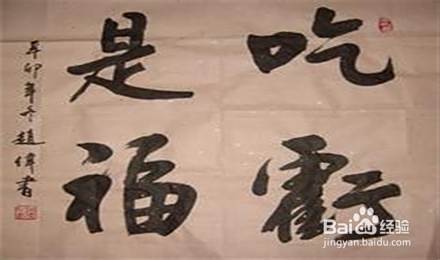 吃虧
是福
辛卯年冬趙偉書
Baidu经验
jingyan.baidu.com